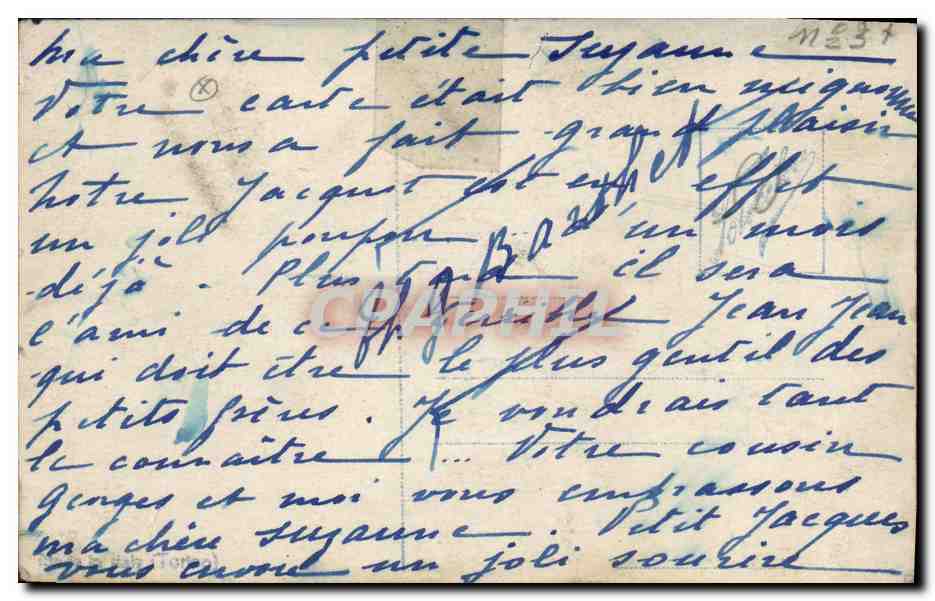 N° 34
Ma chère petite Suzanne
Votre carte était bien mignonne
et nous a fait grand plaisir
notre Jacquot est en effet
un joli poupon un mois
déjà. Plus tard il sera
l'ami de ce Jean Jean
qui doit être le plus gentil des
petits frères. Je voudrais tant
le connaître ... Votre cousin
Georges et moi vous embrassons
ma chère Suzanne. Petit Jacques
vous envoie un joli sourire
CPARAMA